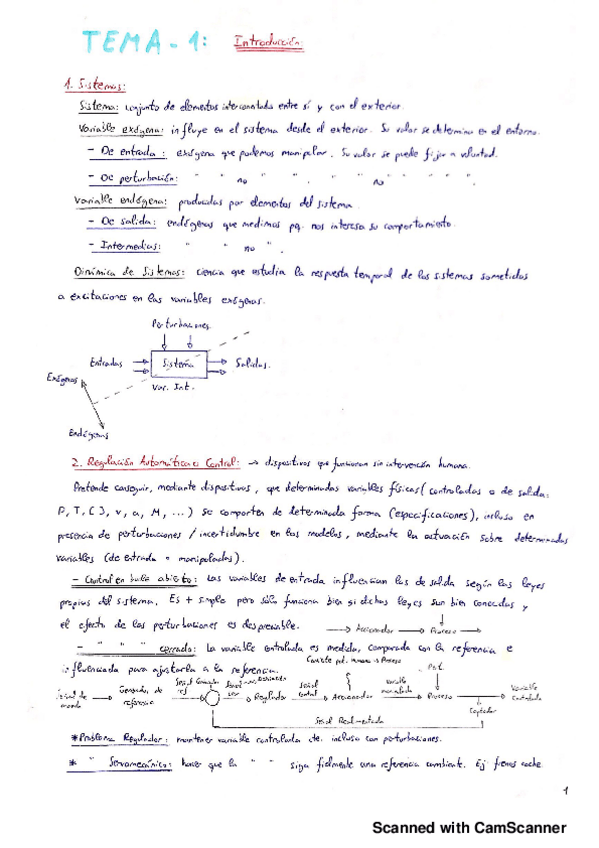 TEMA - 1: Introducción:
1. Sistemas:
Sistema: conjunto de elementos interconectados entre sí y con el exterior.
Variable exógena: influye en el sistema desde el exterior. Su valor se determina en el entorno.
- De entrada: exógena que podemos manipular. Su valor se puede fijar a voluntad.
- De perturbación: " " no " " . " " no " " " ".
Variable endógena: producidas por elementos del sistema.
- De salida: endógenas que medimos pq. nos interesa su comportamiento.
- Intermedias: " " no " .
Dinámica de Sistemas: ciencia que estudia la respuesta temporal de los sistemas sometidos
a excitaciones en las variables exógenas.
Perturbaciones
Entradas Sistema Salidas.
Var. Int.
Exógenas
Endógenas
2. Regulación Automática o Control: → dispositivos que funcionan sin intervención humana.
Pretende conseguir, mediante dispositivos, que determinadas variables físicas (controladas o de salida:
P, T, C ], v, a, M, ...) se comporten de determinada forma (especificaciones), incluso en
presencia de perturbaciones / incertidumbre en los modelos, mediante la actuación sobre determinadas
variables (de entrada o manipuladas).
- Control en bucle abierto: Las variables de entrada influencian las de salida según las leyes
propias del sistema. Es + simple pero sólo funciona bien si dichas leyes son bien conocidas y
el efecto de las perturbaciones es despreciable. → Accionador → Proceso →
- " " " cerrado: la variable controlada es medida, comparada con la referencia e
influenciada para ajustarla a la referencia.
Señal de mando → Generador de referencia → Señal ref → Regulador → Señal Control → Accionador → Variable manipulada → Proceso → Variable Controlada
Pert.
Captador
Señal Realimentada
*Problema Regulador: mantener variable controlada cte. incluso con perturbaciones.
* " Servomecánico: hacer que la " " siga fielmente una referencia cambiante. Ej frenos coche
1
Scanned with CamScanner